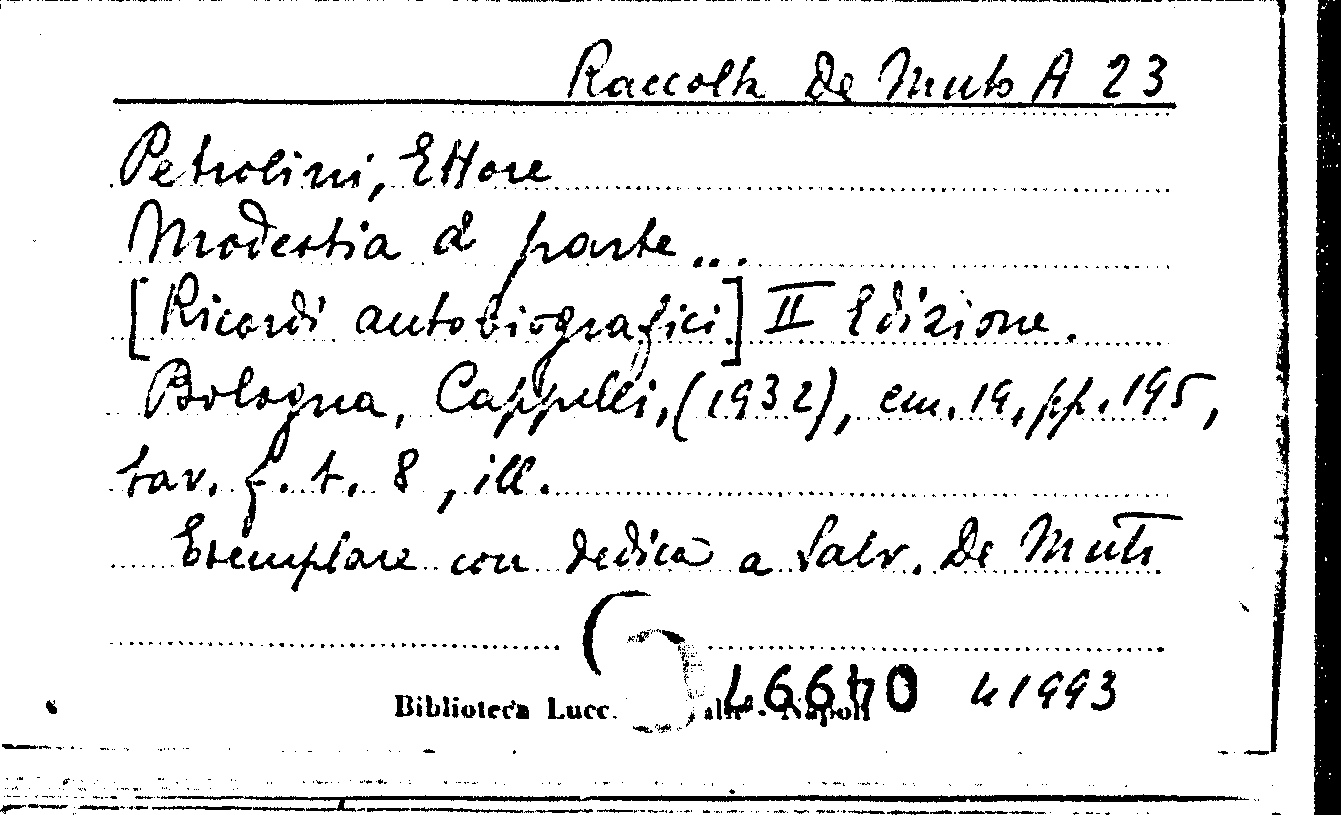 Raccolta De Muto A 23
Petrolini, Ettore
Modestia a parte...
[Ricordi autobiografici] II Edizione.
Bologna, Cappelli, (1932), cm. 19, pp. 195,
tav. f. t. 8, ill.
Esemplare con dedica a Salv. De Muto
Biblioteca Lucc. - Napoli
1993